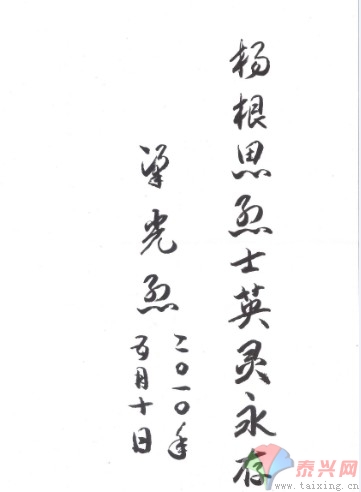 杨根思烈士英灵永存
梁光烈
二〇一〇年
五月十日
泰兴网
www.taixing.cn